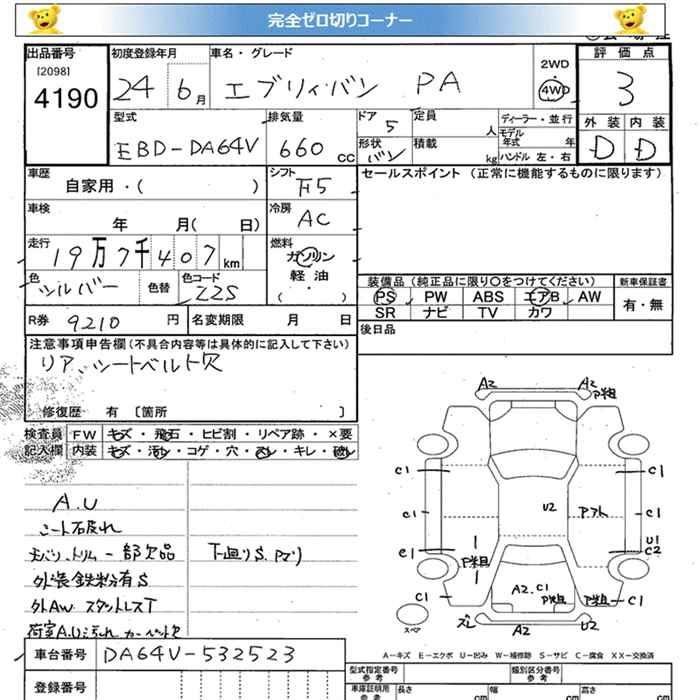 完全ゼロ切りコーナー
出品番号 初度登録年月 車名・グレード 評価点
[2098] 2WD
4190 24 6月 エブリィバン PA 4WD 3
型式 排気量 ドア 定員 ディーラー・並行 外装 内装
EBD-DA64V 660cc 5 人 モデル年式 年 D D
形状 積載
バン kg ハンドル 左・右
車歴 シフト セールスポイント (正常に機能するものに限ります)
自家用・( ) F5
車検 冷房
年 月( 日) AC
走行 燃料
19万7千407km ガソリン
軽油
( ・ )
色 色替 色コード 装備品 (純正品に限り○をつけてください) 新車保証書
シルバー Z2S PS PW ABS エアB AW 有・無
SR ナビ TV カワ
R券 9210円 名変期限 月 日 後日品
注意事項申告欄 (不具合内容等は具体的に記入して下さい)
リア、シートベルト欠
修復歴 有 [箇所 ]
検査員 FW キズ・飛石・ヒビ割・リペア跡・×要
記入欄 内装 キズ・汚レ・コゲ・穴・スレ・キレ・破レ
A.U
シート破れ
一部欠品 下廻りS
外装鉄粉有S
外AW スタットレスT
荷室A.U
A2 A2 P粗
C1 C1
C1 U2 Pアト C1
C1 U1
C2
P粗
C1 A2.C1 P粗 P粗 C1
ズレ A2 U2
スペア
A-キズ E-エクボ U-凹み W-補修跡 S-サビ C-腐食 XX-交換済
車台番号 DA64V-532523
型式指定番号 類別区分番号
参考 参考
登録番号
車庫証明用 長さ 幅 高さ
参考 cm cm cm